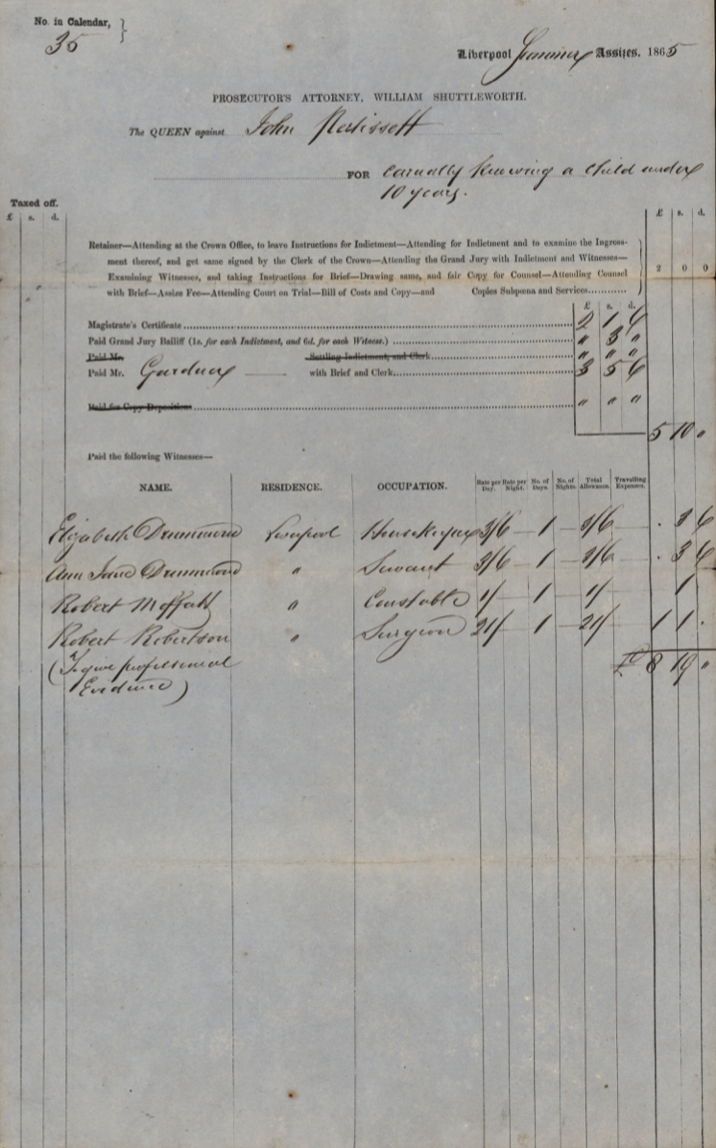 No. in Calendar, }
35
Liverpool Summer Assizes. 1865
PROSECUTOR'S ATTORNEY, WILLIAM SHUTTLEWORTH.
The QUEEN against John
FOR carnally knowing a child under
10 years.
Taxed off.
£ s. d.
£ s. d.
Retainer—Attending at the Crown Office, to leave Instructions for Indictment—Attending for Indictment and to examine the Ingross-
ment thereof, and get same signed by the Clerk of the Crown—Attending the Grand Jury with Indictment and Witnesses—
Examining Witnesses, and taking Instructions for Brief—Drawing same, and fair Copy for Counsel—Attending Counsel 2 0 0
with Brief—Assize Fee—Attending Court on Trial—Bill of Costs and Copy—and Copies Subpœna and Services
£ s. d.
Magistrate's Certificate 2 1 6
Paid Grand Jury Bailiff (1s. for each Indictment, and 6d. for each Witness.) " 3 "
Paid Mr. Settling Indictment, and Clerk " " "
Paid Mr. Gardner with Brief and Clerk 3 5 6
Paid for Copy Depositions " " "
5 10 "
Paid the following Witnesses—
NAME. RESIDENCE. OCCUPATION. Rate per Day. Rate per Night. No. of Days. No. of Nights. Total Allowance. Travelling Expenses.
Elizabeth Drummond Liverpool Housekeeper 3/6 — 1 — 3/6 — . 3 6
Ann Jane Drummond " Servant 3/6 — 1 — 3/6 — . 3 6
Robert Moffatt " Constable 1/ — 1 — 1/ 1
Robert Robertson " Surgeon 21/ — 1 — 21/ 1 1 .
(To give professional £8 19 "
Evidence)